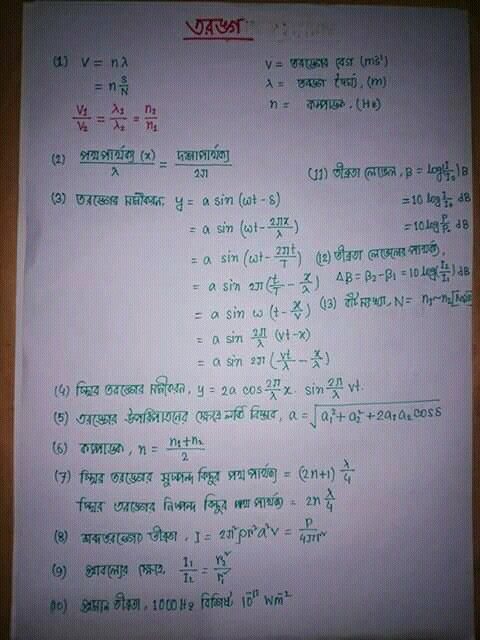 তরঙ্গ
(1) V = nλ
= n S/N
V₁/V₂ = λ₁/λ₂ = n₂/n₁
V = তরঙ্গের বেগ (ms⁻¹)
λ = তরঙ্গ দৈর্ঘ্য, (m)
n = কম্পাঙ্ক, (Hz)
(2) পথপার্থক্য (x)/λ = দশাপার্থক্য/2π
(3) তরঙ্গের সমীকরণ, y = a sin (ωt - δ)
= a sin (ωt - 2πx/λ)
= a sin (ωt - 2πt/T)
= a sin 2π (t/T - x/λ)
= a sin ω (t - x/v)
= a sin 2π/λ (vt - x)
= a sin 2π (vt/λ - x/λ)
(11) তীব্রতা লেভেল, β = log(I/I₀) B
= 10 log I/I₀ dB
= 10 log P/P₀ dB
(12) তীব্রতা লেভেলের পার্থক্য,
Δβ = β₂ - β₁ = 10 log(I₂/I₁) dB
(13) বীটসংখ্যা, N = n₁ ~ n₂
(4) স্থির তরঙ্গের সমীকরণ, y = 2a cos 2π/λ x. sin 2π/λ vt.
(5) তরঙ্গের উপরিপাতনের ক্ষেত্রে লব্ধি বিস্তার, a = √a₁² + a₂² + 2a₁a₂ cosδ
(6) কম্পাঙ্ক, n = n₁+n₂/2
(7) স্থির তরঙ্গের সুস্পন্দ বিন্দুর পথ পার্থক্য = (2n+1) λ/4
স্থির তরঙ্গের নিস্পন্দ বিন্দুর পথ পার্থক্য = 2n λ/4
(8) শব্দতরঙ্গের তীব্রতা, I = 2π²ρn²a²v = P/4πr²
(9) ক্ষেত্রে, I₁/I₂ = r₂²/r₁²
(10) প্রমাণ তীব্রতা, 1000Hz বিশিষ্ট 10⁻¹² Wm⁻²